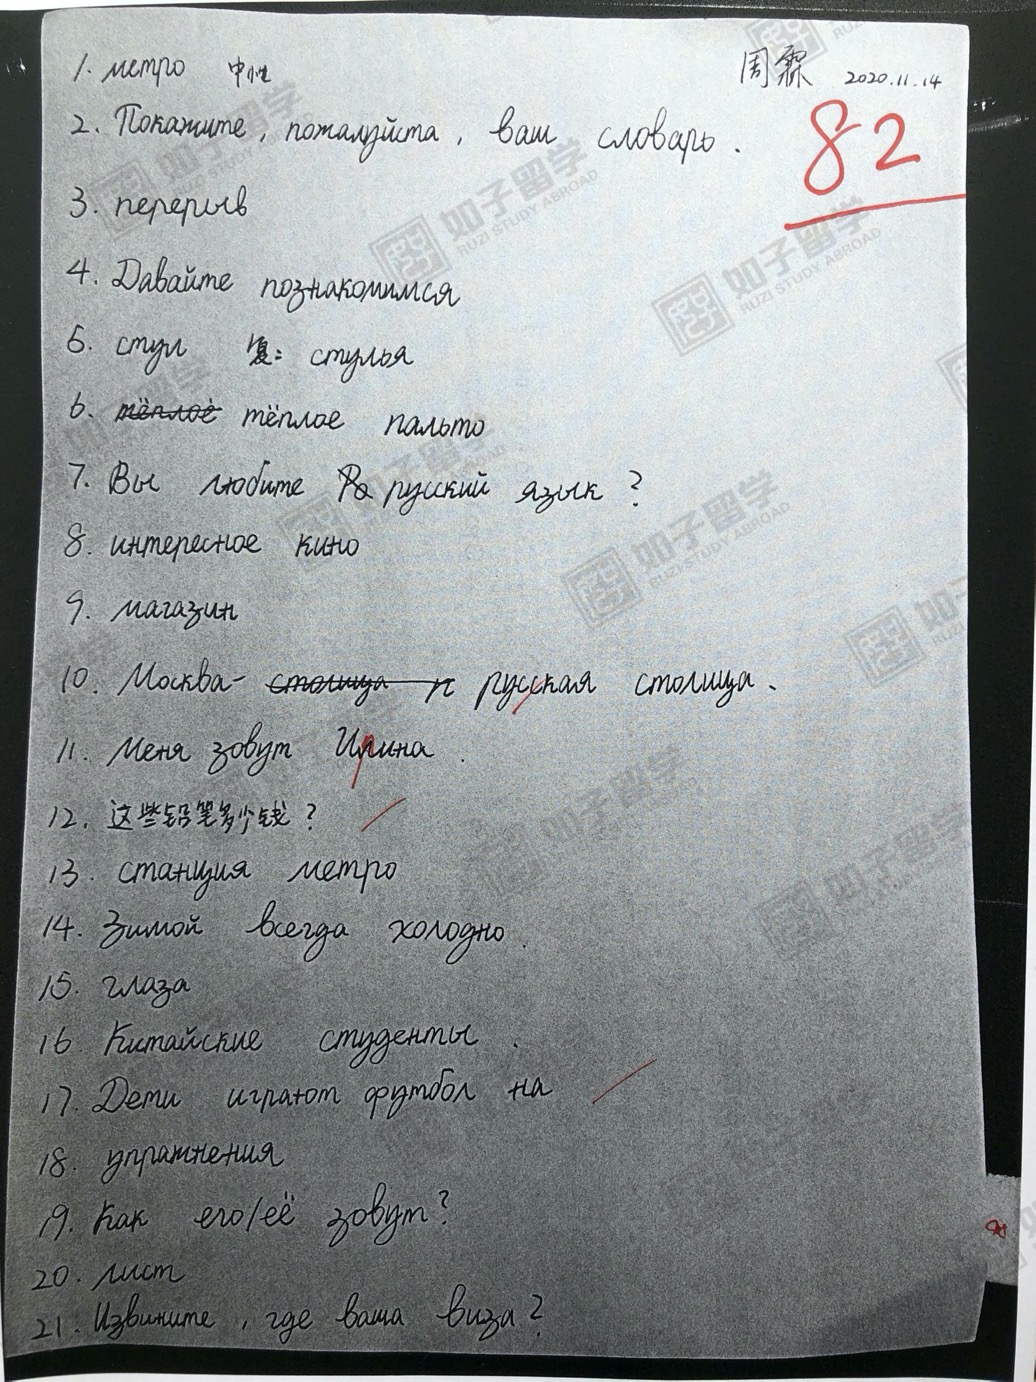 周霖 2020.11.14
82
1. метро 中性
2. Покажите, пожалуйста, ваш словарь.
3. перерыв
4. Давайте познакомимся
5. стул 复: стулья
6. тёплое тёплое пальто
7. Вы любите Ро русский язык?
8. интересное кино
9. магазин
10. Москва- столица р русская столица.
11. Меня зовут Ирина.
12. 这些铅笔多少钱?
13. станция метро
14. Зимой всегда холодно.
15. глаза
16. Китайские студенты.
17. Дети играют футбол на
18. упражнения
19. Как его/её зовут?
20. лист
21. Извините, где ваша виза?
如子留学
RUZI STUDY ABROAD